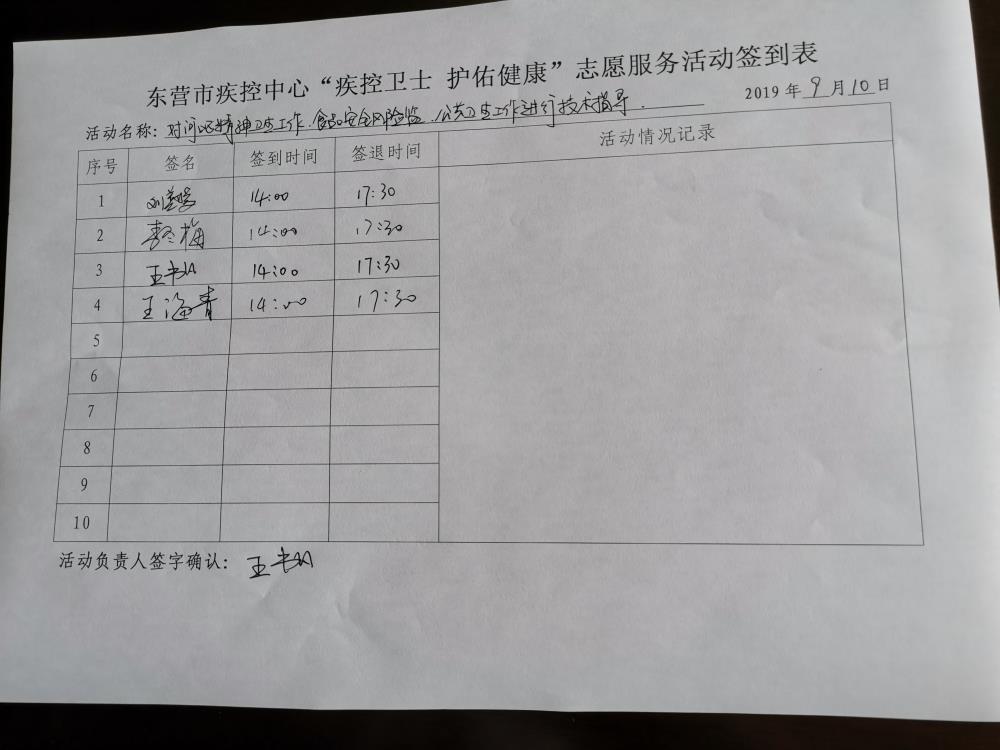 东营市疾控中心“疾控卫士 护佑健康”志愿服务活动签到表
2019 年 9 月 10 日
活动名称: 对河口区精神卫生工作、食品安全风险监、公共卫生工作进行技术指导.
序号 签名 签到时间 签退时间 活动情况记录
1 14:00 17:30
2 李冬梅 14:00 17:30
3 14:00 17:30
4 王海青 14:00 17:30
5
6
7
8
9
10
活动负责人签字确认: